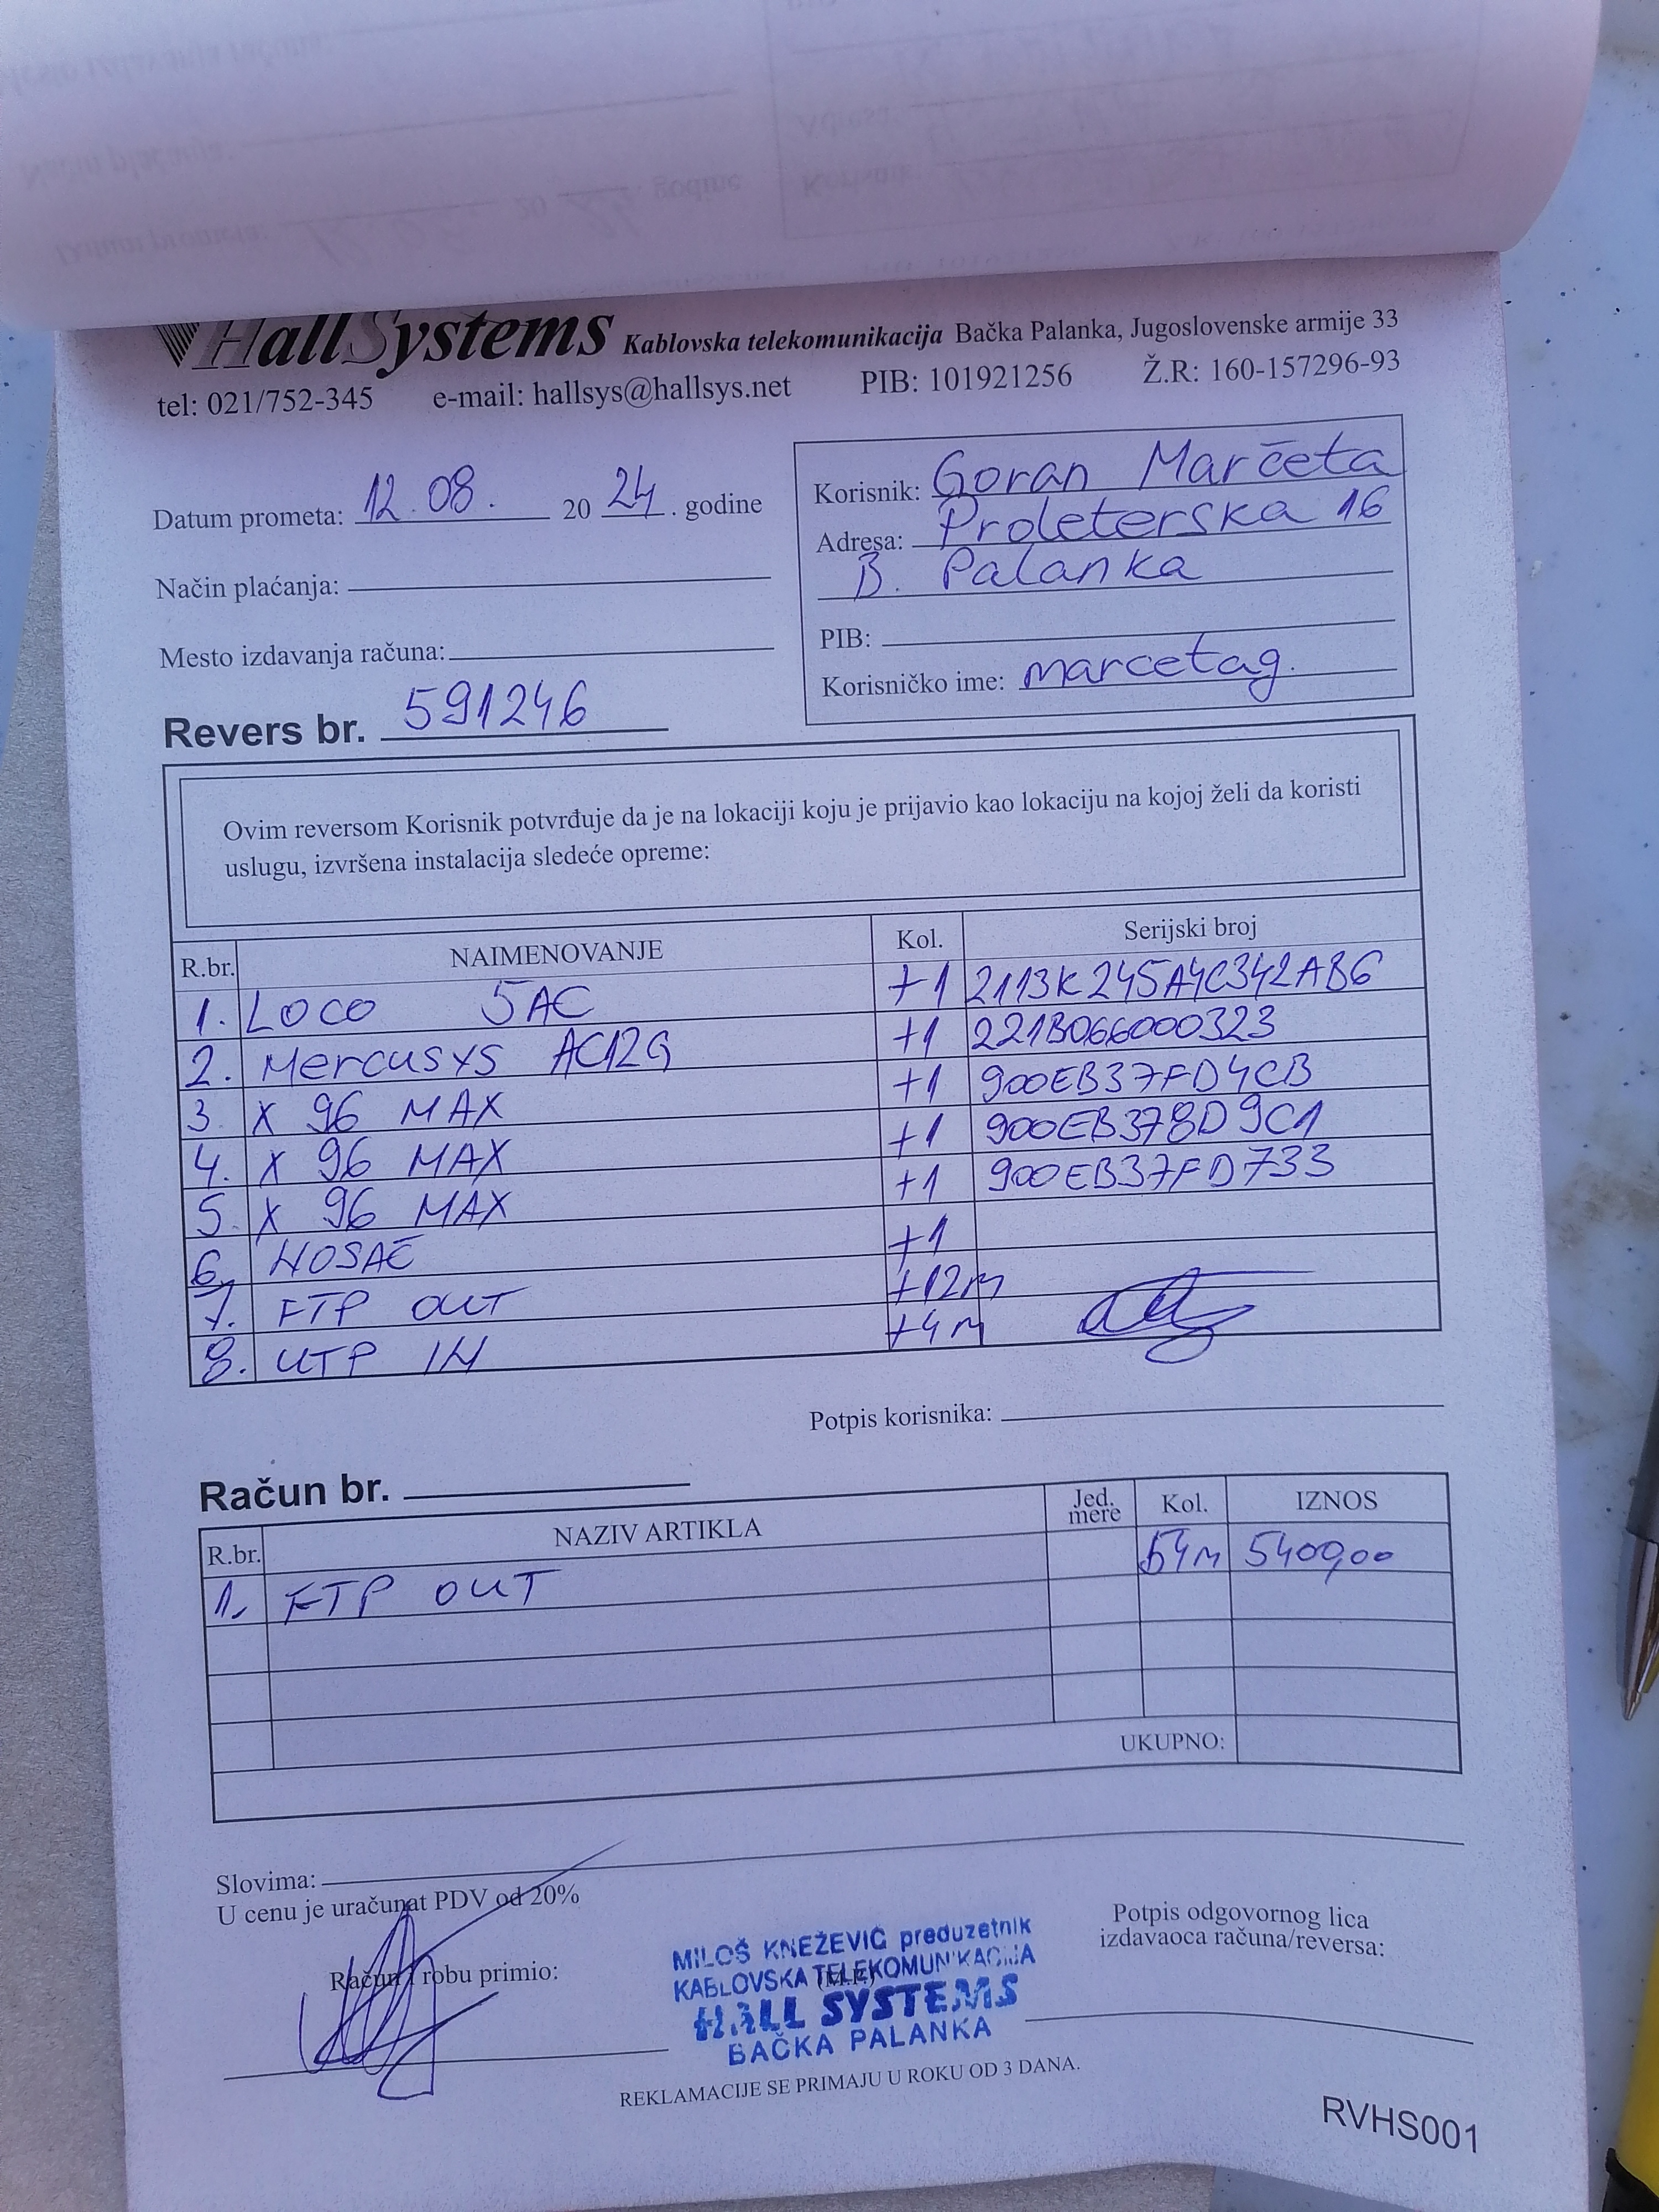 HallSystems Kablovska telekomunikacija Bačka Palanka, Jugoslovenske armije 33
tel: 021/752-345 e-mail: hallsys@hallsys.net PIB: 101921256 Ž.R: 160-157296-93
Datum prometa: 12.08. 20 24. godine
Način plaćanja:
Mesto izdavanja računa:
Korisnik: Goran Marčeta
Adresa: Proleterska 16
B. Palanka
PIB:
Korisničko ime: marcetag.
Revers br. 591246
Ovim reversom Korisnik potvrđuje da je na lokaciji koju je prijavio kao lokaciju na kojoj želi da koristi
uslugu, izvršena instalacija sledeće opreme:
R.br. NAIMENOVANJE Kol. Serijski broj
1. LOCO 5AC +1 2113K245A4C342AB6
2. Mercusys AC12G +1 221B066000323
3. X 96 MAX +1 900EB37FD4CB
4. X 96 MAX +1 900EB378D9C1
5. X 96 MAX +1 900EB37FD733
6. NOSAČ +1
7. FTP OUT +12m
8. UTP IN +4m
Potpis korisnika:
Račun br.
R.br. NAZIV ARTIKLA Jed. mere Kol. IZNOS
1. FTP OUT 54m 5400,00
UKUPNO:
Slovima:
U cenu je uračunat PDV od 20%
Račun i robu primio:
(M.P.)
MILOŠ KNEŽEVIĆ preduzetnik
KABLOVSKA TELEKOMUNIKACIJA
HALL SYSTEMS
BAČKA PALANKA
Potpis odgovornog lica
izdavaoca računa/reversa:
REKLAMACIJE SE PRIMAJU U ROKU OD 3 DANA.
RVHS001